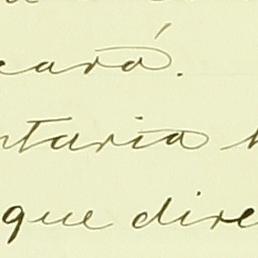 cará.
ntaria
que dire